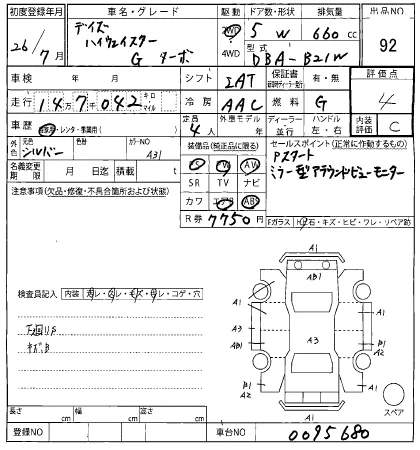 初度登録年月 車名・グレード 駆動 ドア数・形状 排気量 出品NO
26/7月 デイズ ハイウェイスター G ターボ 2WD 4WD 5 W 660cc 92
型式 DBA-B21W
車検 年 月 シフト IAT 保証書 有・無 評価点 4
走行 147042 キロ マイル 冷房 AAC 燃料 G
車歴 自家用・レンタ・事業用( ) 定員 4人 外車モデル 年 ディーラー 並行 ハンドル 左・右 内装評価 C
外色 元色 シルバー 色替 カラーNO A31 装備品(純正品に限る) セールスポイント(正常に作動するもの)
名義変更期限 月 日迄 積載 t PS PW AW Pスタート
注意事項(欠品・修復・不具合箇所および状態) SR TV ナビ ミラー型アラウンドビューモニター
カワ エアB ABS
R券 7750円 Fガラス 飛石・キズ・ヒビ・ワレ・リペア跡
A1
AB1
検査員記入 内装 スレ・コゲ・穴
A1 A1
A3 A3 B1
下廻りS AB1 A1
キズB
B1 A2
B1 A2
A1
スペア
長さ cm 幅 cm 高さ cm
登録NO 車台NO 0095680